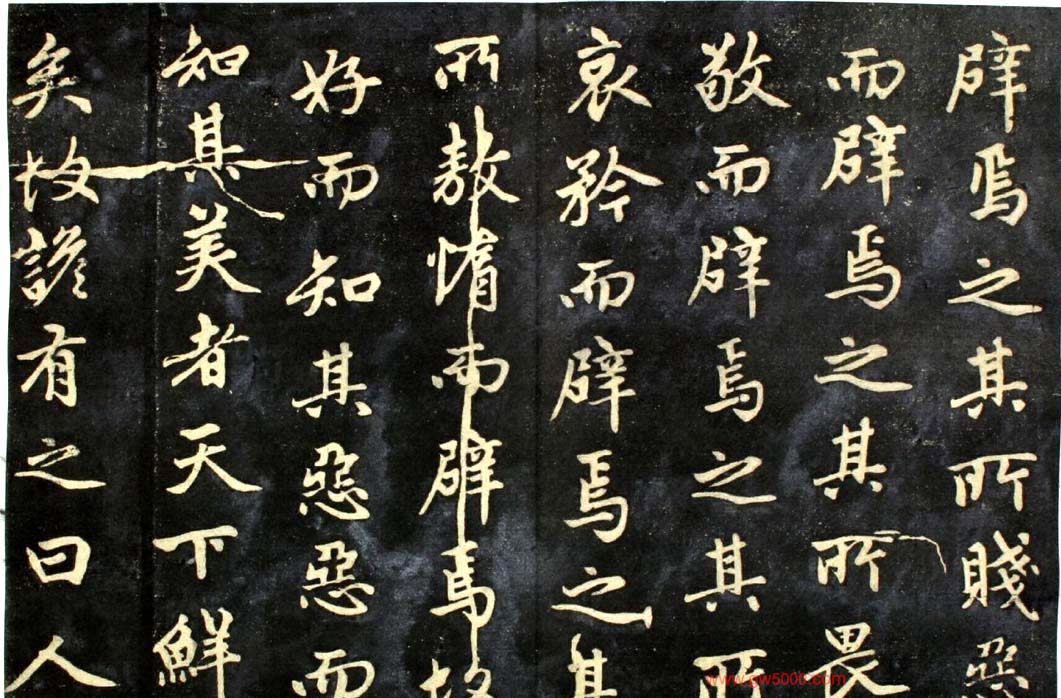 辟焉之其所賤惡
而辟焉之其所畏
敬而辟焉之其所
哀矜而辟焉之其
所敖惰而辟焉故
好而知其惡惡而
知其美者天下鮮
矣故諺有之曰人
www.gw5000.com